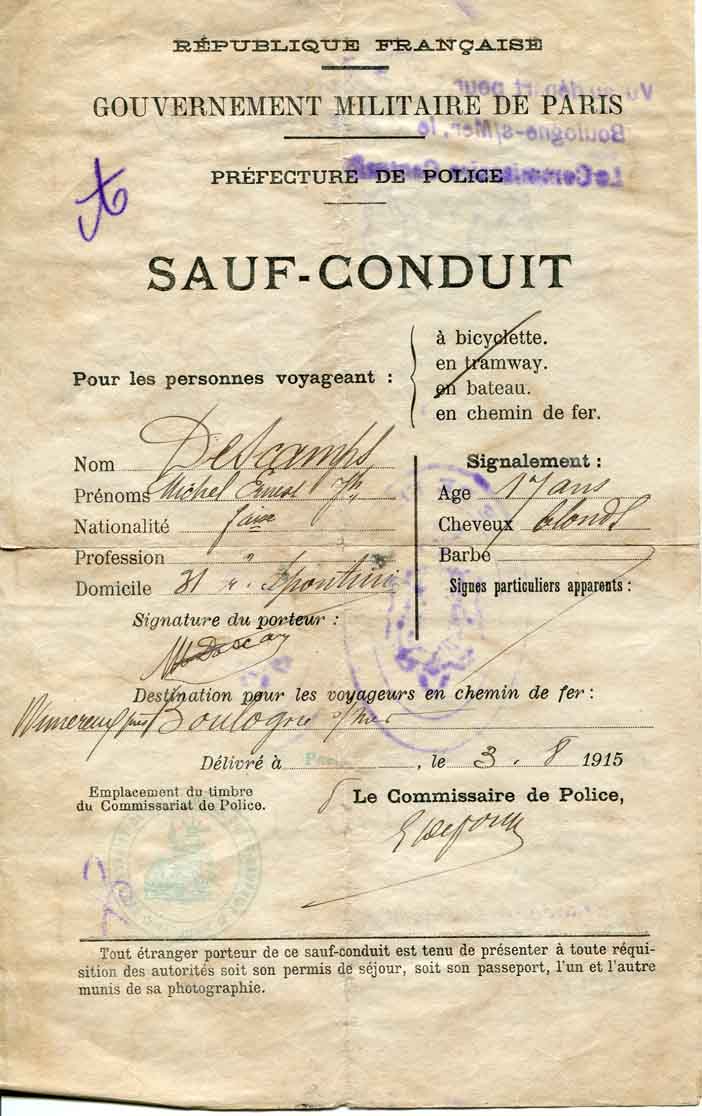 RÉPUBLIQUE FRANÇAISE
GOUVERNEMENT MILITAIRE DE PARIS
Vu au départ pour
Boulogne-s/Mer, le
Le Commissaire Central
PRÉFECTURE DE POLICE
SAUF-CONDUIT
Pour les personnes voyageant :
à bicyclette.
en tramway.
en bateau.
en chemin de fer.
Nom Descamps
Prénoms Michel Ernest Jh
Nationalité faise
Profession "
Domicile 31 r. Spontini
Signalement :
Age 17 ans
Cheveux blonds
Barbe
Signes particuliers apparents :
Signature du porteur :
Destination pour les voyageurs en chemin de fer :
Wimereux près Boulogne s/mer
Délivré à Paris, le 3. 8 1915
Emplacement du timbre
du Commissariat de Police.
Le Commissaire de Police,
Tout étranger porteur de ce sauf-conduit est tenu de présenter à toute réqui-
sition des autorités soit son permis de séjour, soit son passeport, l'un et l'autre
munis de sa photographie.